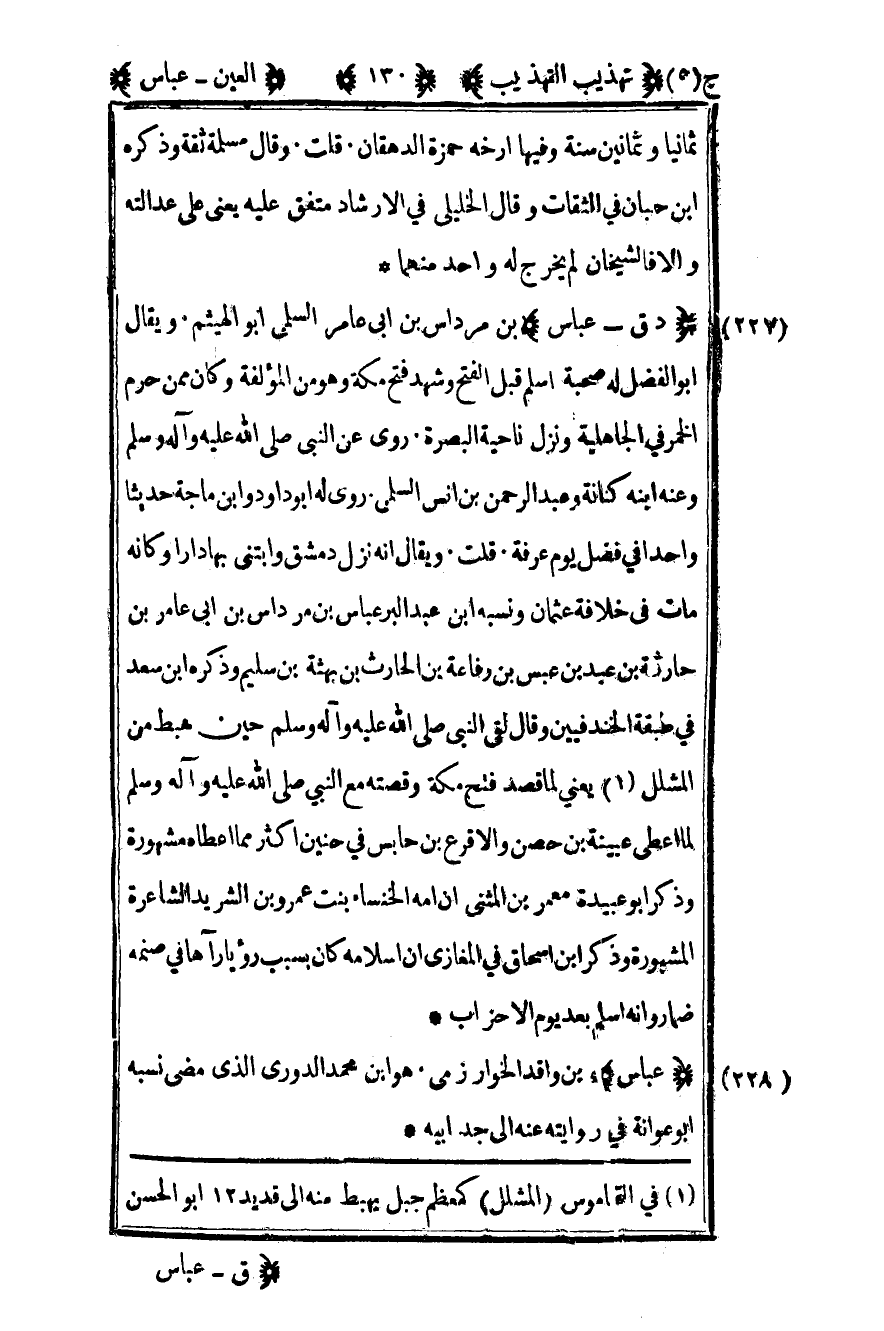 ج(٥) ﴿ تهذيب التهذيب ﴾ ﴿ ١٣٠ ﴾ ﴿ العين ــ عباس ﴾
ثمانيا و ثمانين سنة وفيها ارخه حمزة الدهقان · قلت · وقال مسلمة ثقة وذكره
ابن حبان في الثقات و قال الخليلي في الارشاد متفق عليه يعنى على عدالته
و الا فالشيخان لم يخرج له و احد منهما *
(٢٢٧) ﴿ د ق ــ عباس ﴾ بن مرداس بن ابى عامر السلمي ابو الهيثم · و يقال
ابو الفضل له صحبة اسلم قبل الفتح وشهد فتح مكة وهو من المؤلفة وكان ممن حرم
الخمر في الجاهلية ونزل ناحية البصرة · روى عن النبى صلى الله عليه وآله وسلم
وعنه ابنه كنانة وعبد الرحمن بن انس السلمى · روى له ابو داود وابن ماجة حديثا
واحدا في فضل يوم عرفة · قلت · ويقال انه نزل دمشق وابتنى بها دارا وكانه
مات فى خلافة عثمان ونسبه ابن عبد البر عباس بن مرداس بن ابى عامر بن
حارثة بن عبد بن عبس بن رفاعة بن الحارث بن بهثة بن سليم وذكره ابن سعد
في طبقة الخندقيين وقال لقى النبى صلى الله عليه وآله وسلم حين هبط من
المشلل (١) يعني لما قصد فتح مكة وقصته مع النبي صلى الله عليه و آله وسلم
لما اعطى عيينة بن حصن والاقرع بن حابس في حنين اكثر مما اعطاه مشهورة
وذكر ابو عبيدة معمر بن المثنى ان امه الخنساء بنت عمرو بن الشريد الشاعرة
المشهورة وذكر ابن اسحاق في المغازى ان اسلامه كان بسبب رؤيا رآها في صنمه
ضمار وانه اسلم بعد يوم الاحزاب *
(٢٢٨) ﴿ عباس ﴾ بن واقد الخوارزمى · هو ابن محمد الدورى الذى مضى نسبه
ابو عوانة في روايته عنه الى جد ابيه *
(١) في القاموس (المشلل) كمعظم جبل يهبط منه الى قديد ١٢ ابو الحسن
﴿ ق ــ عباس